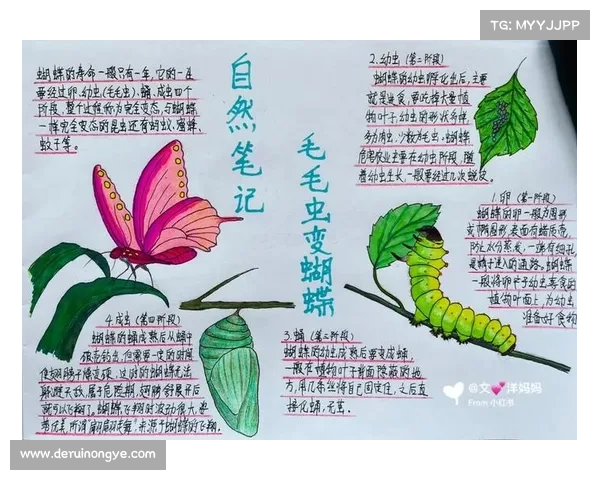 TG: MYYJJPP
自然笔记
毛毛虫变蝴蝶
蝴蝶的寿命一般只有一年，它的一生
要经过卵、幼虫(毛毛虫)、蛹、成虫四个
阶段，整个过程称为完全变态，与蝴蝶
一样完全变态的昆虫还有蚂蚁、蜜蜂、
蚊子等。
2.幼虫（第二阶段）
蝴蝶的幼虫孵化出后，主要
就是进食，要吃掉大量植
物叶子，幼虫的形状多样，
多为肉虫，少数为毛虫，蝴蝶
危害农业主要在幼虫阶段，随
着幼虫生长，一般要经过几次蜕皮
1.卵（第一阶段）
蝴蝶的卵一般为圆形
或椭圆形，表面有蜡质壳，
防止水分蒸发，一端有细孔，
是精子进入的通路。蝴蝶
一般将卵产于幼虫喜食的
植物叶面上，为幼虫
准备好食物
4.成虫（第四阶段）
蝴蝶的蛹成熟后从蛹中
破壳钻出，但需要一定的时间
使翅膀干燥变硬，这时的蝴蝶无法
躲避天敌，属于危险期，翅膀舒展开后
就可以飞翔了，蝴蝶飞翔时波动很大，姿
势优美，所谓“翩翩起舞”，来源于蝴蝶的飞翔。
3.蛹（第三阶段）
蝴蝶的幼虫成熟后要变成蛹，
一般在植物叶子背面隐蔽的地
方，用几条丝将自己固定住，之后直
接化蛹，无茧。
@文💕洋妈妈
From 小红书
www.deruinongye.com